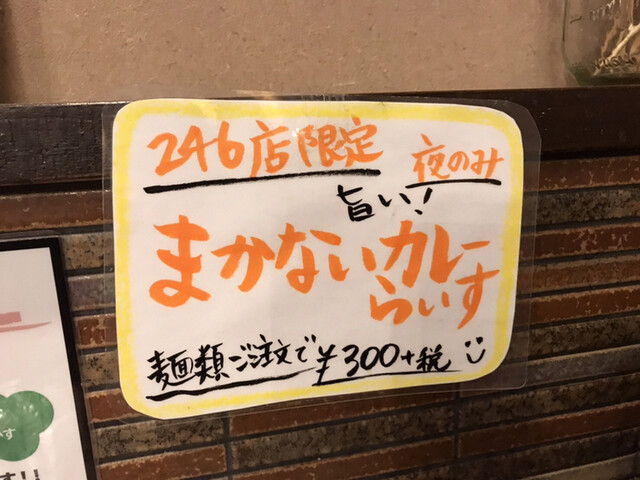 246店限定 夜のみ
旨い!
まかないカレー
らいす
麺類ご注文で¥300+税
す
す!!